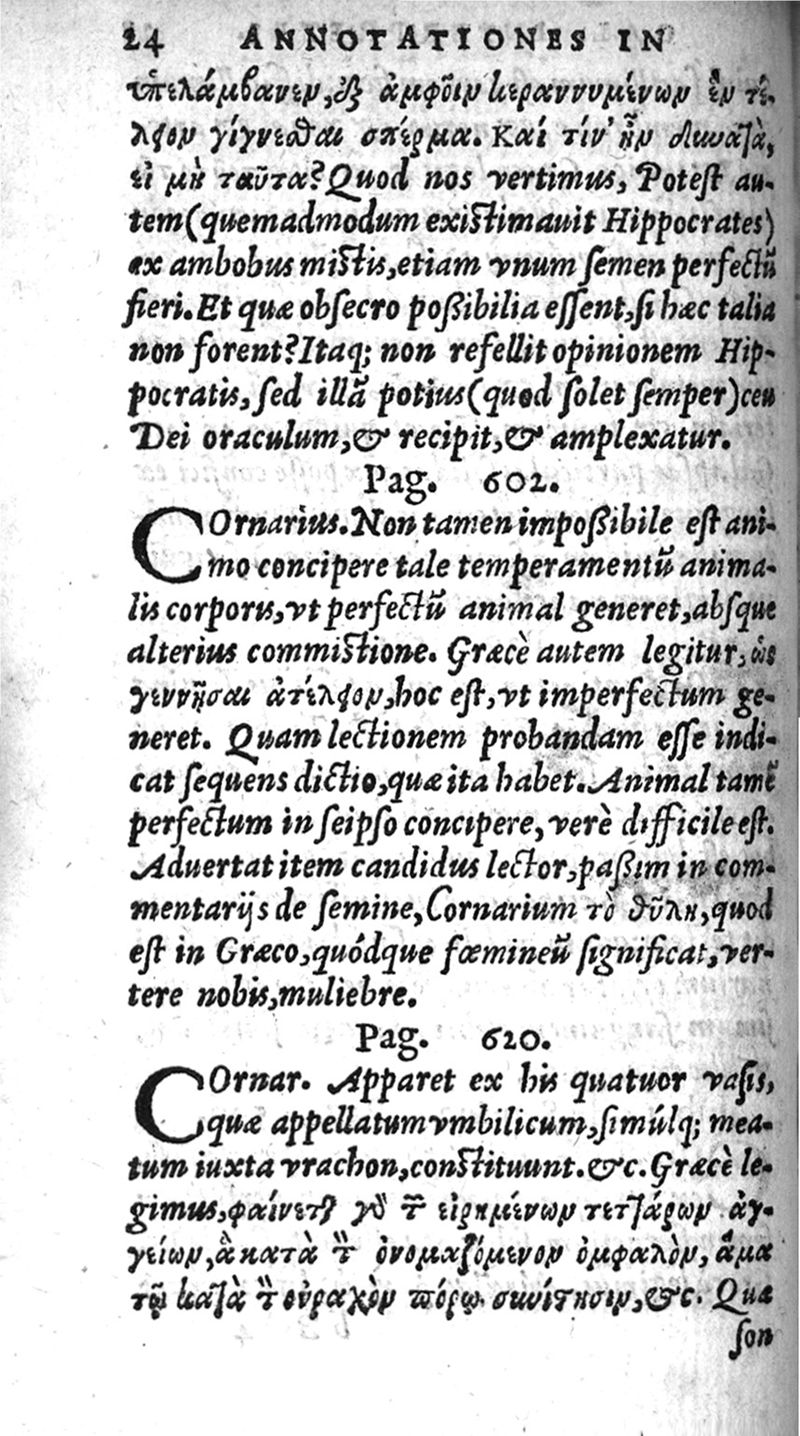 24 ANNOTATIONES IN
ὑπελάμβανεν, ἐξ ἀμφοῖν κεραννυμένων ἓν τέ-
λειον γίγνεσθαι σπέρμα. Καί τίν' ἦν δυνατὰ,
εἰ μὴ ταῦτα? Quod nos vertimus, Potest au-
tem (quemadmodum existimauit Hippocrates)
ex ambobus mistis, etiam vnum semen perfectũ
fieri. Et quæ obsecro poßibilia essent, si hæc talia
non forent? Itaq; non refellit opinionem Hip-
pocratis, sed illã potius (quod solet semper) ceu
Dei oraculum, & recipit, & amplexatur.
Pag. 602.
COrnarius. Non tamen impoßibile est ani-
mo concipere tale temperamentũ anima-
lis corporis, vt perfectũ animal generet, absque
alterius commistione. Græcè autem legitur, ὡς
γεννῆσαι ἀτέλειον, hoc est, vt imperfectum ge-
neret. Quam lectionem probandam esse indi-
cat sequens dictio, quæ ita habet. Animal tamẽ
perfectum in seipso concipere, verè difficile est.
Aduertat item candidus lector, paßim in com-
mentarijs de semine, Cornarium τὸ θῦλη, quod
est in Græco, quódque fœmineũ significat, ver-
tere nobis, muliebre.
Pag. 620.
COrnar. Apparet ex his quatuor vasis,
quæ appellatum vmbilicum, simúlq; mea-
tum iuxta vrachon, constituunt. &c. Græcè le-
gimus, φαίνεται γὰρ τῶν εἰρημένων τεττάρων ἀγ-
γείων, ἃ κατὰ τὸν ὀνομαζόμενον ὀμφαλὸν, ἅμα
τῷ κατὰ τὸν οὐραχὸν πόρῳ συνίστησιν, &c. Quæ
son